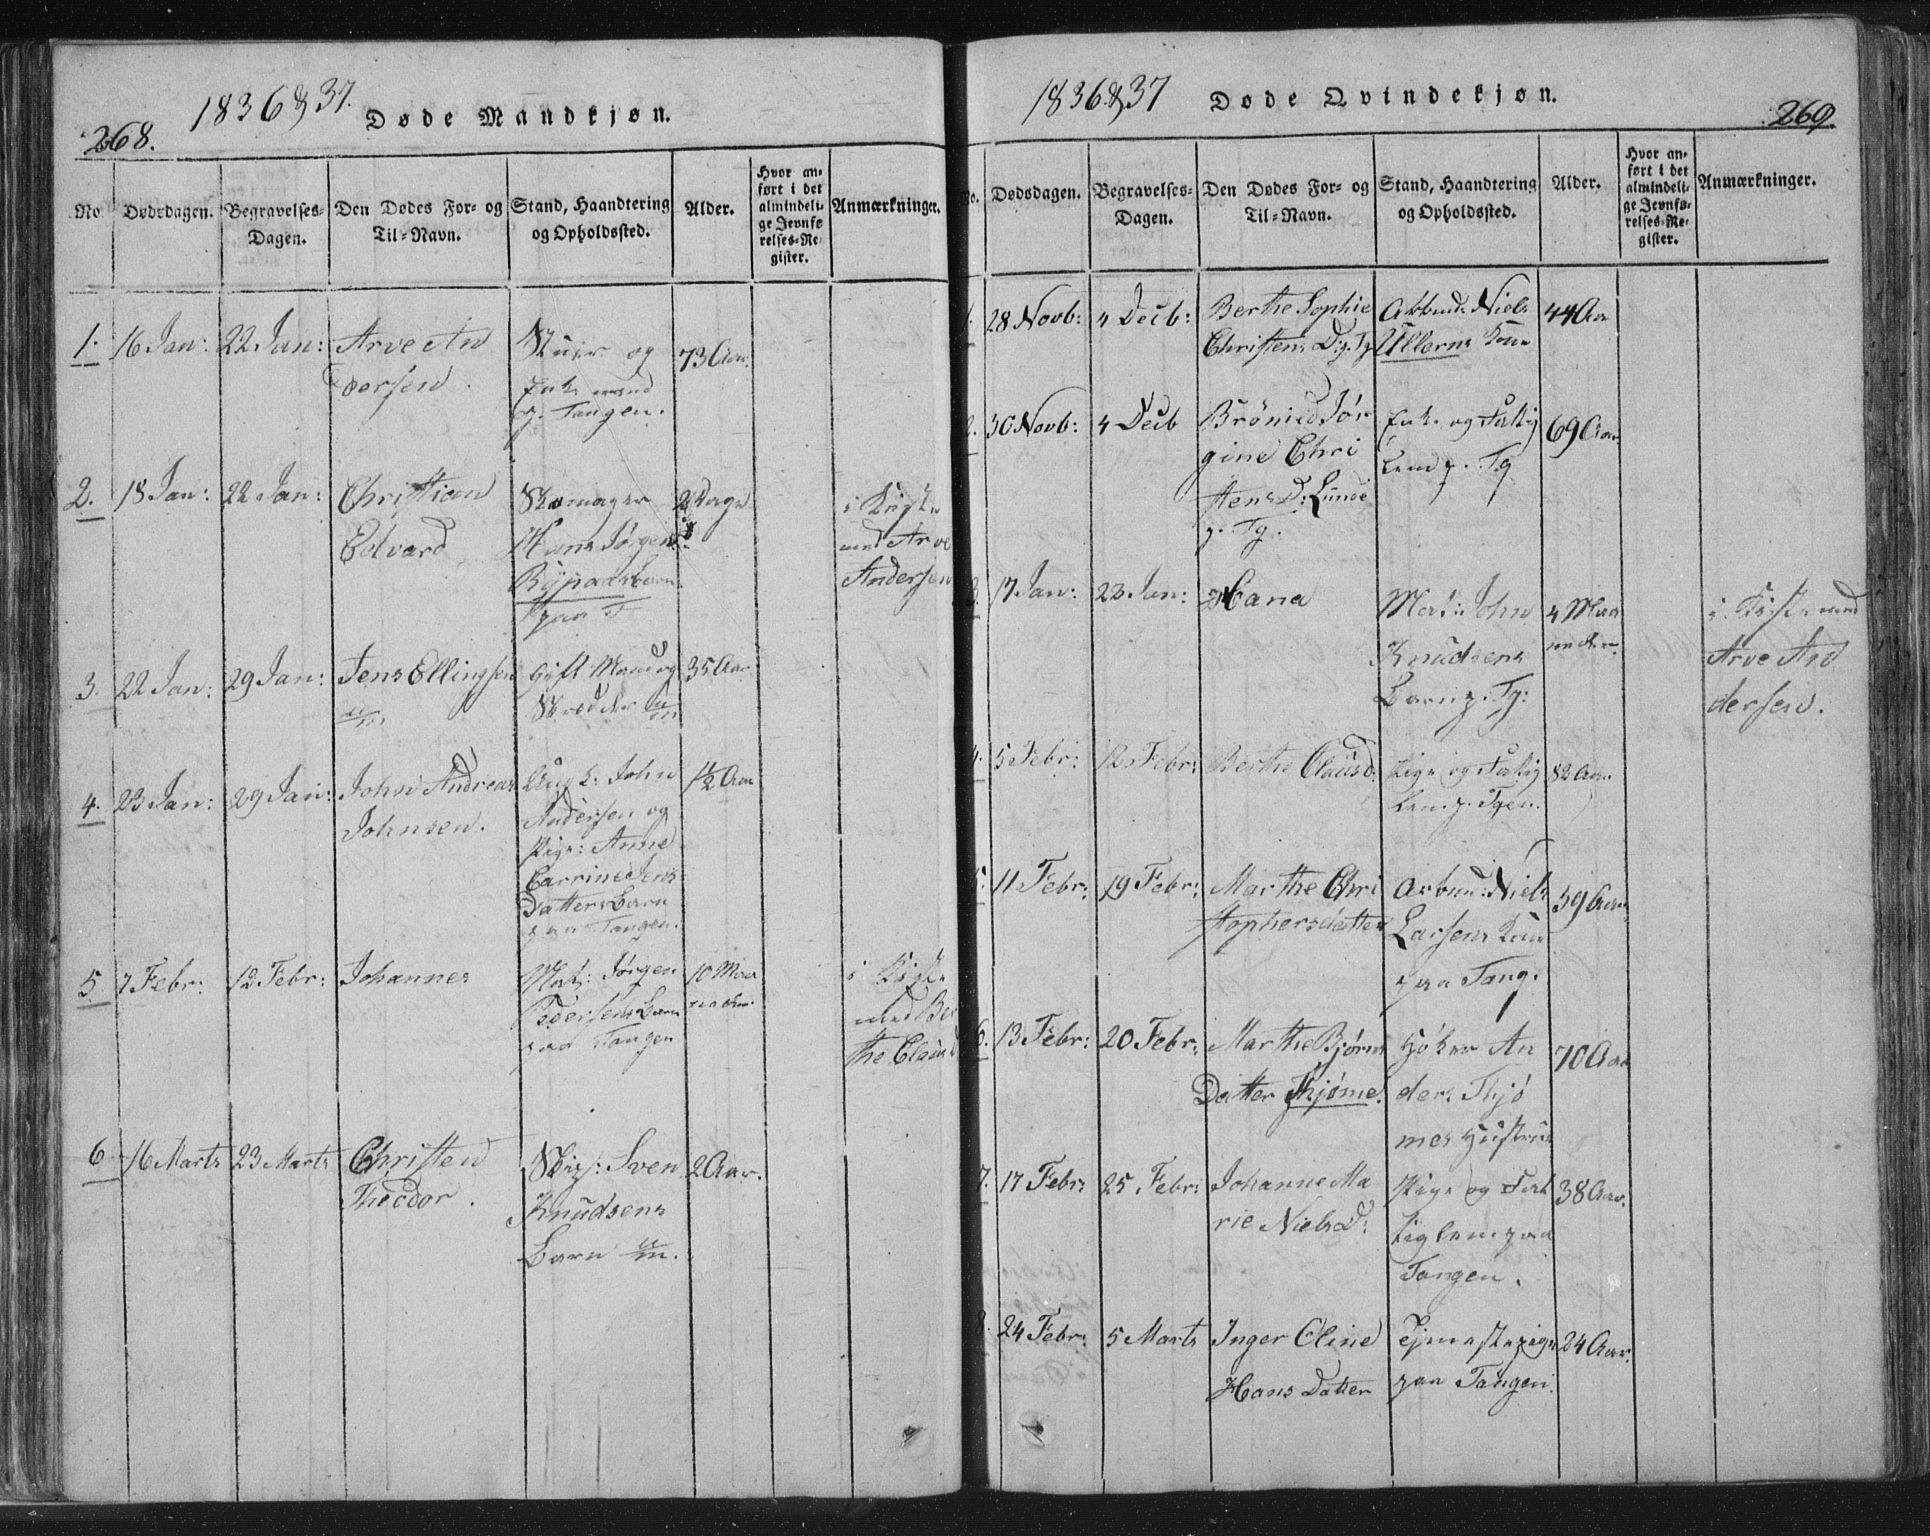 1836 & 37.
Døde Mandkjøn.
268.
No
Dødsdagen.
Begravelses-
Dagen.
Den Dødes For- og
Til-Navn.
Stand, Haandtering
og Opholdssted.
Alder.
Hvor an-
ført i det
almindeli-
ge Jevnfø-
relses-Re-
gister.
Anmærkninger.
1.
16 Jan:
22 Jan:
Arve An
dersen.
og
Enkemand
p. Tangen.
73 Aar
2.
18 Jan:
22 Jan:
Christian
Edvard
Skomager
Hans Jørgen
paa T
2 Dage
i Kiste
med Arve
Andersen
3.
22 Jan:
29 Jan:
Jens Ellingsen
Gift Mand og
Skredder
35 Aar
4.
23 Jan:
29 Jan:
John Andreas
Johnsen.
Ungk: John
Andersen og
Pige: Anne
Carrine Jens
Datters Barn
paa Tangen.
1½ Aar
5.
7 Febr:
12 Febr:
Johannes
Mat: Jørgen
Pedersens Barn
paa Tangen
10 Maa
neder
i Kiste
med Ber
the Clausd
6
16 Marts
23 Marts
Christen
Theodor.
Sven
Knudsens
Barn
2 Aar.
1836 & 37
Døde Qvindekjøn.
269
No.
Dødsdagen.
Begravelses-
Dagen.
Den Dødes For- og
Til-Navn.
Stand, Haandtering
og Opholdssted.
Alder.
Hvor an-
ført i det
almindeli-
ge Jevnfø-
relses-Re-
gister.
Anmærkninger.
1.
28 Novb:
4 Decb:
Berthe Sophie
Christens D. p. Tg
Arbmd: Niels
Ullerns Kone
44 Aar
2.
30 Novb:
4 Decb
Jør
gine Chri
stens D: Lunde
p. Tg.
Enke og Fattig
Lem p. Tg
69 Aar
3.
17 Jan:
22 Jan:
Hana
Mat: John
Knudsens
Barn p. Tg:
4 Maa
neder
i Kiste med
Arve An
dersen.
4.
5 Febr:
12 Febr:
Berthe Clausd:
Pige og Fattig
Lem p. Tgen.
82 Aar
5.
11 Febr:
19 Febr:
Marthe Chri
stophersdatter
Arbmd: Niels
Larsens Kone
paa Tang.
59 Aar
6.
13 Febr:
20 Febr:
Marthe Bjørns
Datter Thjøme.
Høker An
ders Thjø
mes Hustrue
70 Aar
7.
17 Febr:
25 Febr:
Johanne Ma
rie Niels D:
Pige og Fat
tiglem paa
Tangen.
38 Aar.
8.
24 Febr:
5 Marts
Inger Oline
Hans Datter
Tjenestepige
paa Tangen.
24 Aar.